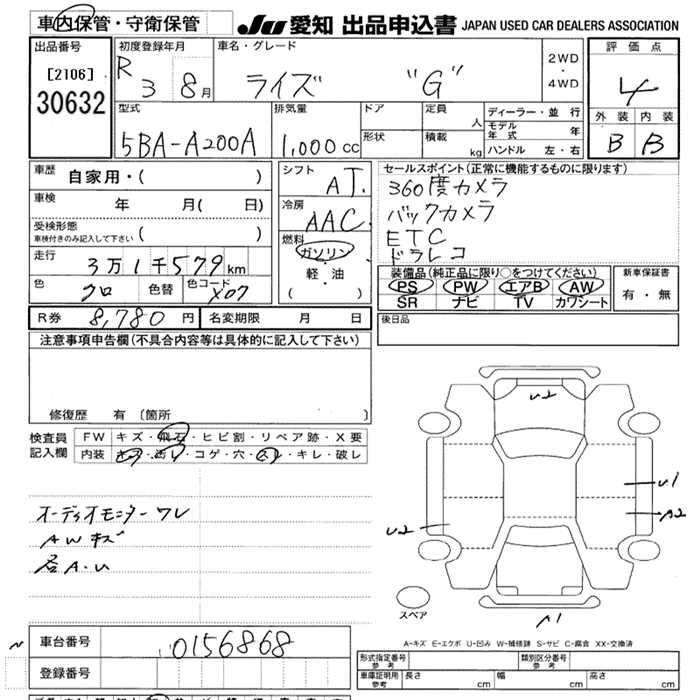 車内保管・守衛保管
JU 愛知 出品申込書 JAPAN USED CAR DEALERS ASSOCIATION
出品番号
[2106]
30632
初度登録年月
R 3 8月
車名・グレード
ライズ "G"
2WD
・
4WD
評価点
4
外装 内装
B B
型式
5BA-A200A
排気量
1,000cc
ドア
形状
定員
人
積載
kg
ディーラー・並行
モデル年式 年
ハンドル 左・右
車歴 自家用・( )
車検 年 月( 日)
受検形態
車検付きのみ記入して下さい ( )
走行 3万1千579km
色 クロ 色替 色コード X07
シフト
AT
冷房
AAC
燃料
ガソリン・
軽・油
( )
セールスポイント(正常に機能するものに限ります)
360度カメラ
バックカメラ
ETC
ドラレコ
装備品(純正品に限り○をつけてください)
PS PW エアB AW
SR ナビ TV カワシート
新車保証書
有・無
R券 8,780円 名変期限 月 日
後日品
注意事項申告欄(不具合内容等は具体的に記入して下さい)
修復歴 有〔箇所 〕
検査員
記入欄
FW キズ・飛石・ヒビ割・リペア跡・X要
内装 キズ・西レ・コゲ・穴・スレ・キレ・破レ
オーディオモニターワレ
AWキズ
各A.U
U2
U1
A2
U2
A1
スペア
A-キズ E-エクボ U-凹み W-補修跡 S-サビ C-腐食 XX-交換済
車台番号 0156868
登録番号
形式指定番号
参考
類別区分番号
参考
車庫証明用
参考
長さ cm 幅 cm 高さ cm